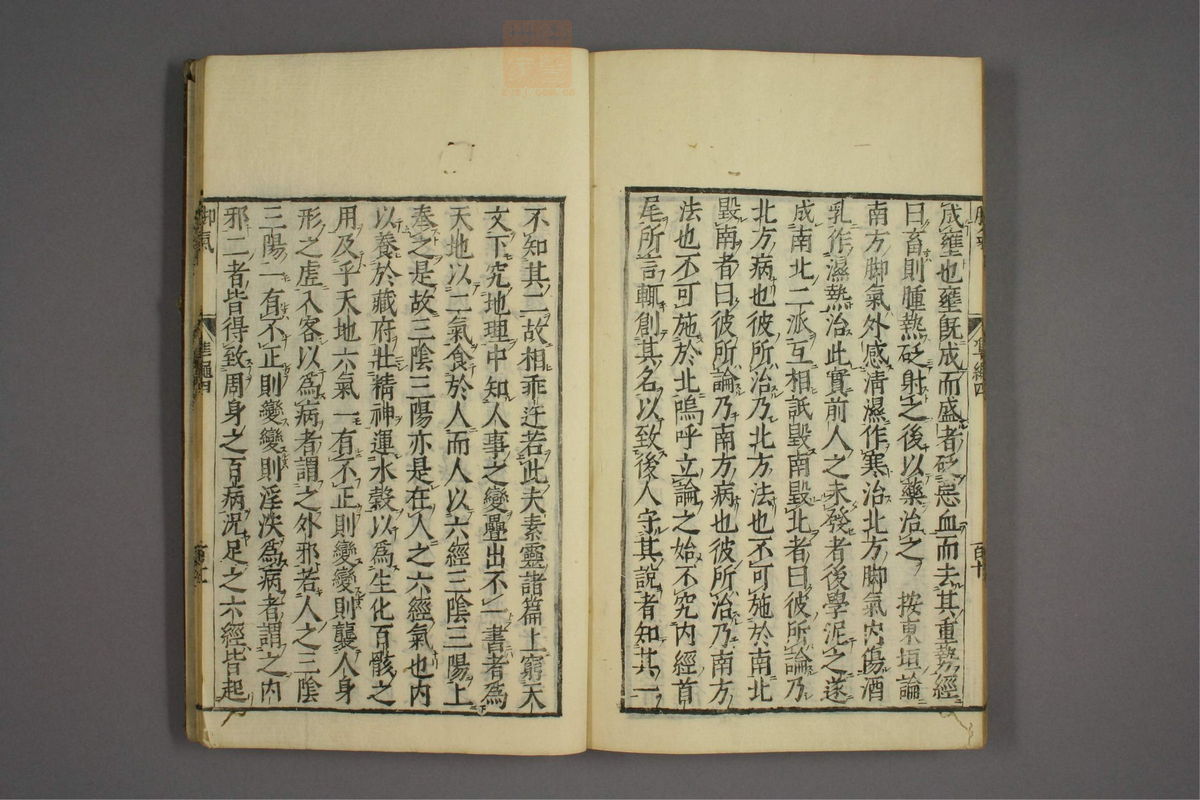 成壅也壅既成而盛者砭惡血而去其重勢經
曰畜則腫熱砭射之後以藥治之　按東垣論
南方脚氣外感清濕作寒治北方脚氣内傷酒
乳作濕熱治此實前人之未發者後學泥之遂
成南北二派互相詆毀南毀北者曰彼所論乃
北方病也彼所治乃北方法也不可施於南北
毀南者曰彼所論乃南方病也彼所治乃南方
法也不可施於北嗚呼立論之始不究内經首
尾所言輒創其名以致後人守其說者知其一
不知其二故相乖迕若此夫素靈諸篇上窮天
文下究地理中知人事之變疊出不一書者爲
天地以二氣食於人而人以六經三陰三陽上
奉之是故三陰三陽亦是在人之六經氣也内
以養於藏府壮精神運水穀以爲生化百骸之
用及乎天地六氣一有不正則變變則襲人身
形之虛入客以爲病者謂之外邪若人之三陰
三陽一有不正則變變則淫泆爲病者謂之内
邪二者皆得致周身之百病況足之六經皆起
脚氣
準繩四